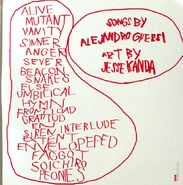 ALIVE
MUTANT
VANITY
SINNER
ANGER
SEVER
BEACON
SNAKES
ELSE
UMBILICAL
HYMN
FRONT LOAD
GRATITUD
EN
SIREN INTERLUDE
EXTENT
ENVELOPED
FAGGOT
SOICHIRO
PEONIES
SONGS BY
ALEJANDRO GHERSI
ART BY
JESSE KANDA